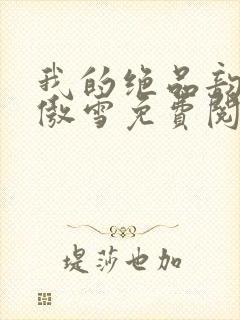 我的绝品
傲雪免费阅
堤莎也加